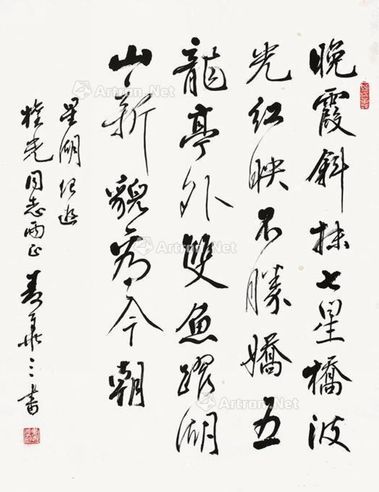 晚霞斜抹七星橋波
光紅映不勝嬌五
龍亭外雙魚躍湖
山新貌為今朝
星湖纪遊
光同志兩正 書
Artron.Net
Artron.Net
Artron.Net